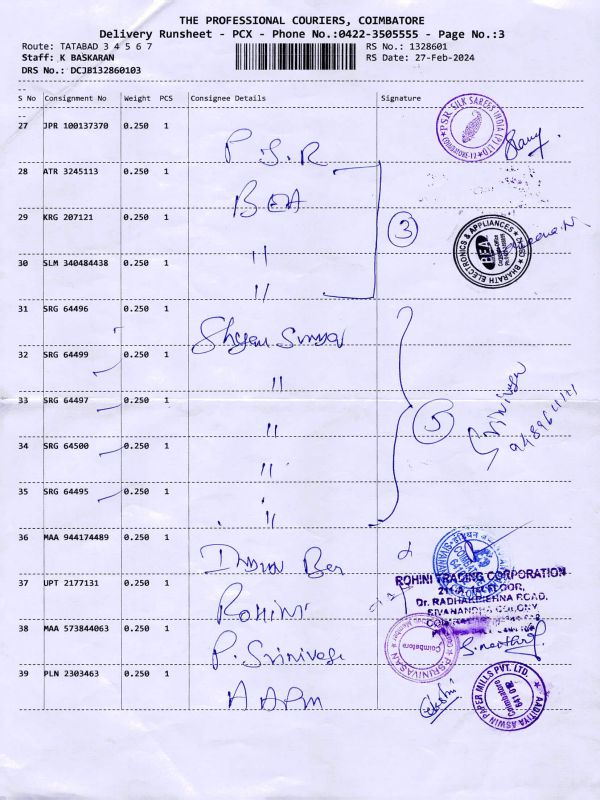 THE PROFESSIONAL COURIERS, COIMBATORE
Delivery Runsheet - PCX - Phone No.:0422-3505555 - Page No.:3
Route: TATABAD 3 4 5 6 7 RS No.: 1328601
Staff: K BASKARAN RS Date: 27-Feb-2024
DRS No.: DCJB132860103
S No Consignment No Weight PCS Consignee Details Signature
27 JPR 100137370 0.250 1 P.S.R
P.S.R. SILK SAREES INDIA (P) LTD
28 ATR 3245113 0.250 1 BEA
29 KRG 207121 0.250 1 "
3
BHARATH ELECTRONICS & APPLIANCES
BEA
30 SLM 340484438 0.250 1 "
31 SRG 64496 0.250 1 Shyam Surya
32 SRG 64499 0.250 1 "
33 SRG 64497 0.250 1 "
5
Srinivasan
34 SRG 64500 0.250 1 "
35 SRG 64495 0.250 1 "
36 MAA 944174489 0.250 1
37 UPT 2177131 0.250 1 Rohini
ROHINI TRADING CORPORATION
211-A, 1st FLOOR,
Dr. RADHAKRISHNA ROAD,
SIVANANDHA COLONY
38 MAA 573844063 0.250 1 P. Srinivasa
P.SRINIVASAN
Coimbatore
39 PLN 2303463 0.250 1 AAPM
AADITYA ASWIN PAPER MILLS PVT. LTD.
Coimbatore
641 012